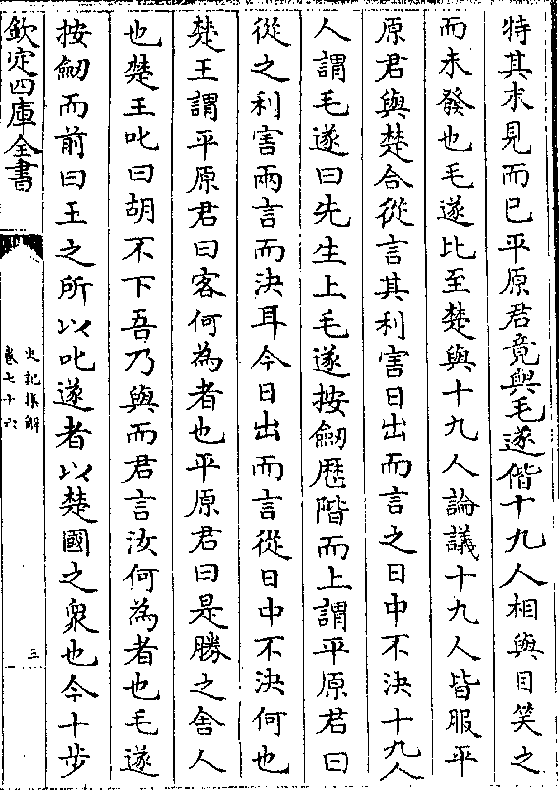 特其末見而已平原君竟與毛遂偕十九人相與目笑之
而未發也毛遂比至楚與十九人論議十九人皆服平
原君與楚合從言其利害日出而言之日中不決十九人
人謂毛遂曰先生上毛遂按劒歴階而上謂平原君曰
從之利害兩言而決耳今日出而言從日中不決何也
楚王謂平原君曰客何為者也平原君曰是勝之舍人
也楚王叱曰胡不下吾乃與而君言汝何為者也毛遂
按劒而前曰王之所以叱遂者以楚國之衆也今十步
欽定四庫全書
史記集解
卷七十六
三